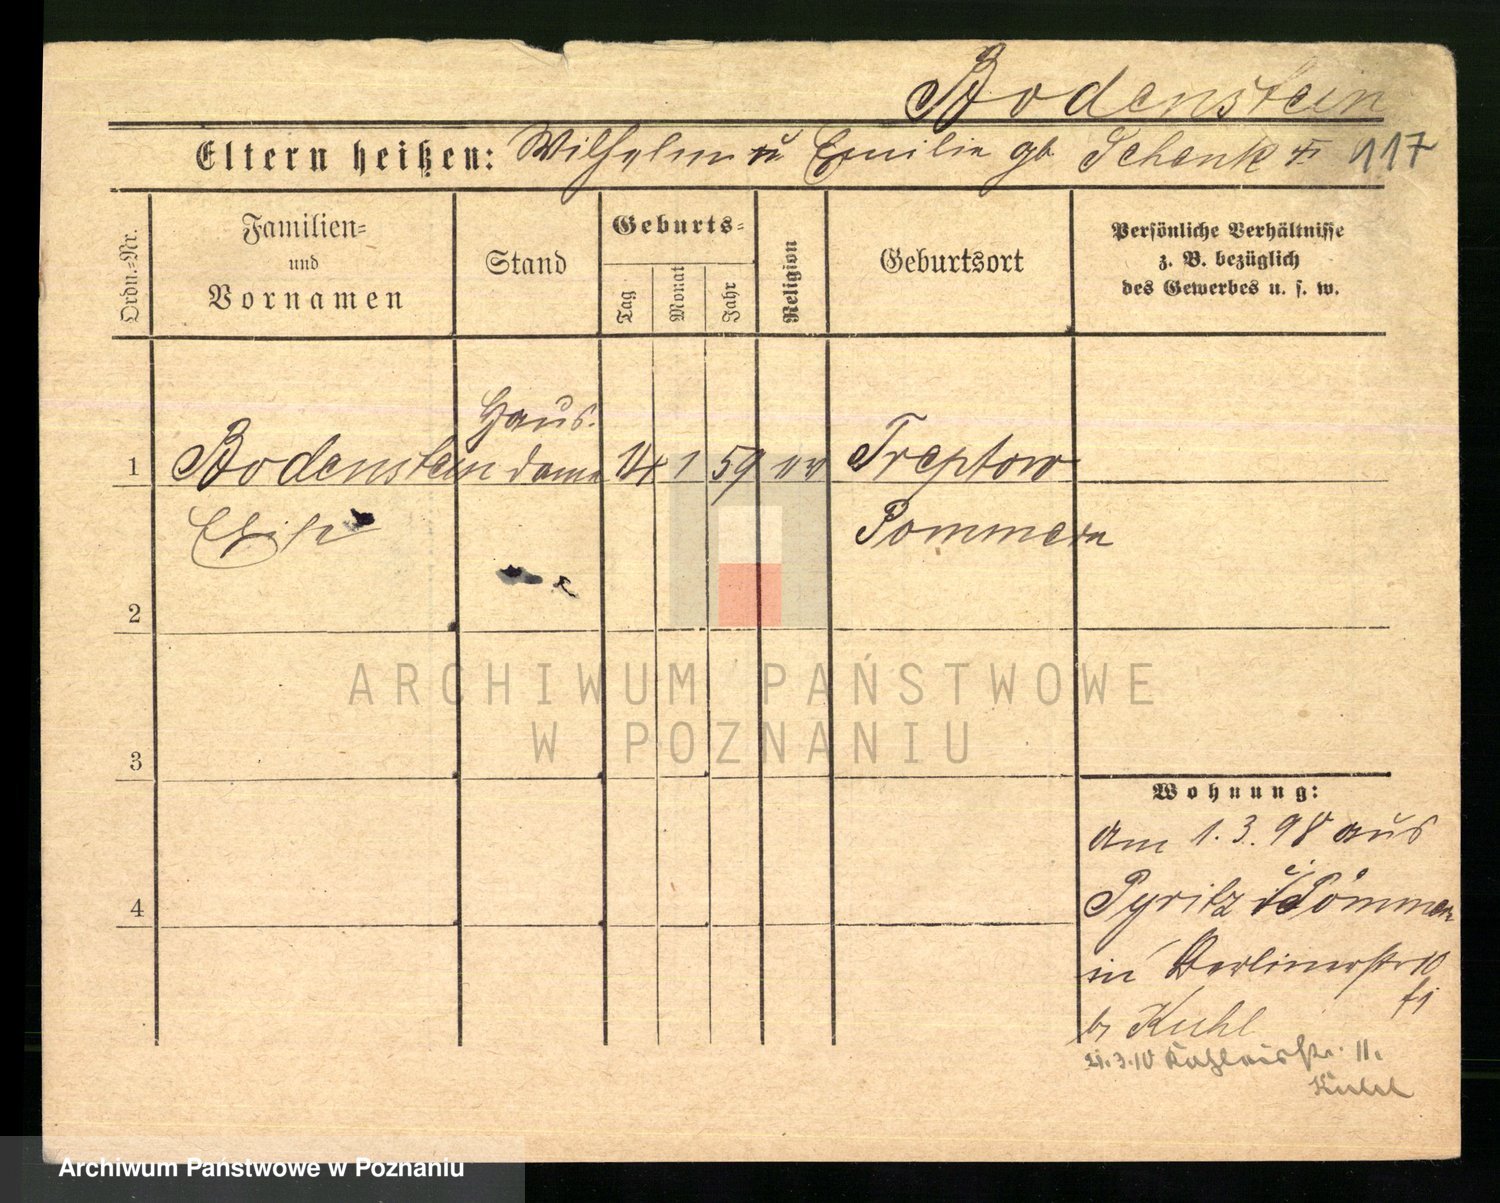 Bodenstein
Eltern heißen: Wilhelm u Emilie gb Schenk 117
Ordn.=Nr.
Familien=
und
Vornamen
Stand
Geburts=
Tag
Monat
Jahr
Religion
Geburtsort
Persönliche Verhältnisse
z. B. bezüglich
des Gewerbes u. s. w.
Haus-
1 Bodenstein dame 14 1 59 ev Treptow
Elise Pommern
2
3
4
ARCHIWUM PAŃSTWOWE
W POZNANIU
Wohnung:
am 1.3.98 aus
Pyritz Pommern
in Berlinerstr 10
b, Kuhl
21.3.10 11.
Kuhl
Archiwum Państwowe w Poznaniu